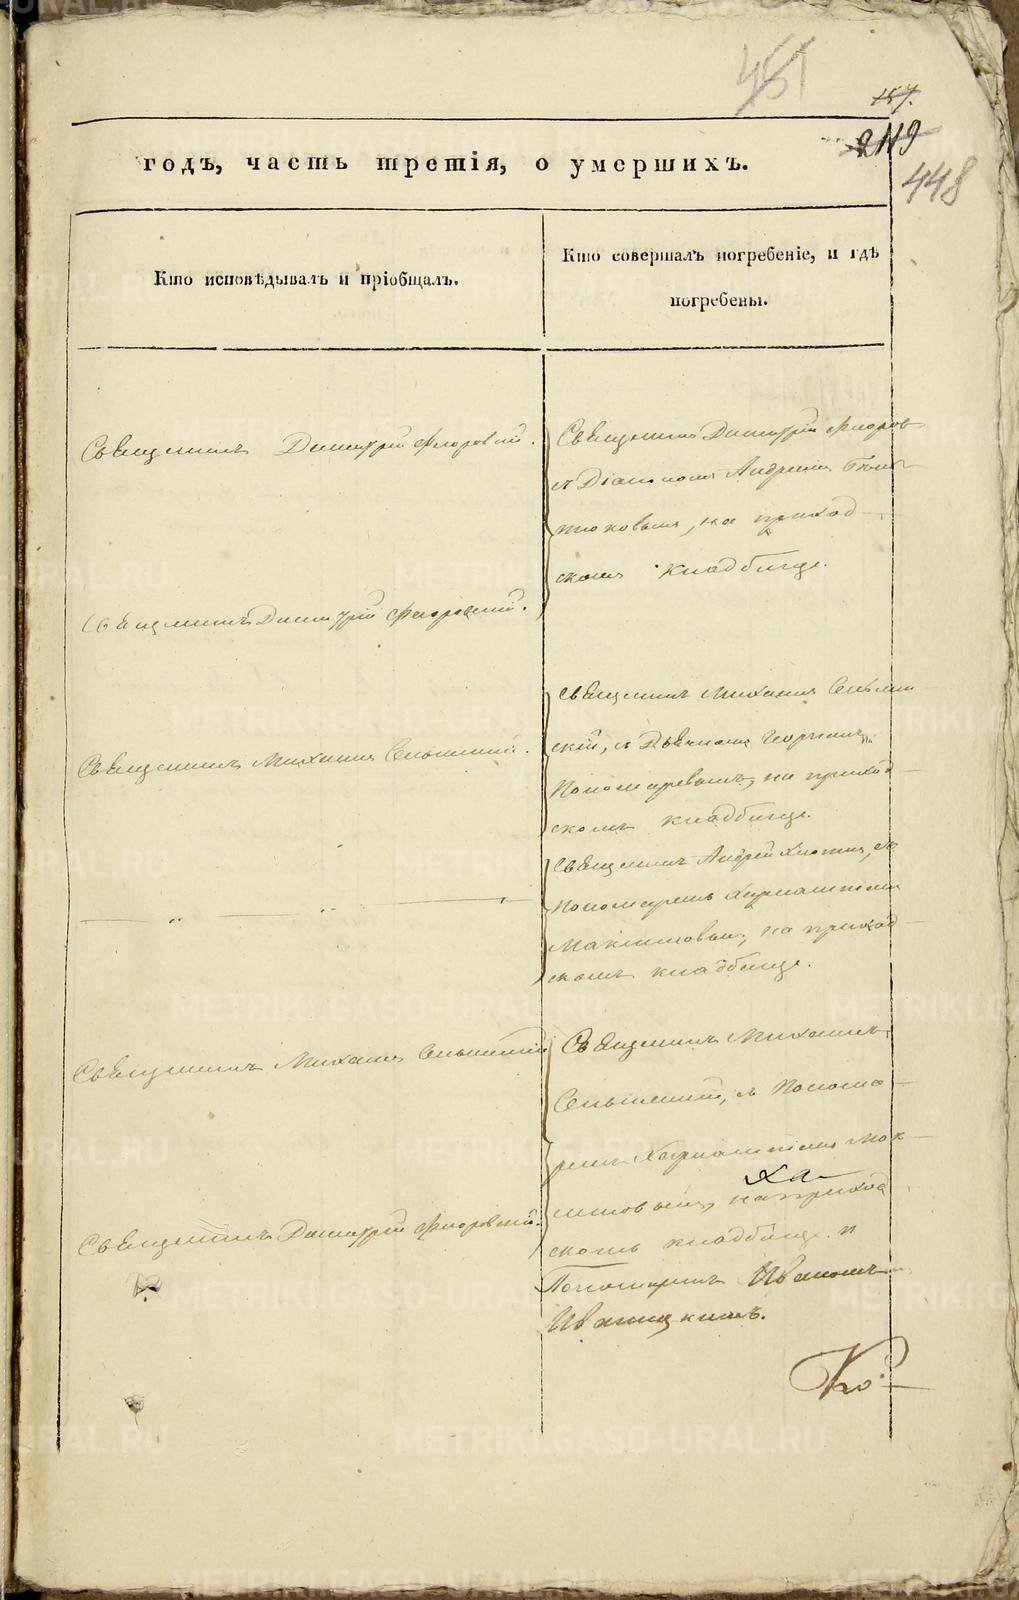 451
157.
2119
448
годъ, часть третія, о умершихъ.
Кто исповѣдывалъ и пріобщалъ.
Кто совершалъ погребеніе, и гдѣ
погребены.
Священникъ Димитрій Флоровскій.
Священникъ Димитрій Флоров-
съ Діакономъ Андреемъ
на приход-
скомъ кладбищѣ.
Священникъ Димитрій Флоровскій.
Священникъ Михаилъ
скій, съ Дьячкомъ Георгіемъ
Пономаревымъ, на приход-
скомъ кладбищѣ.
Священникъ Михаилъ
Священникъ Андрей съ
Пономаремъ Харлампіемъ
Максимовымъ, на приход-
скомъ кладбищѣ.
Священникъ Михаилъ
Священникъ Михаилъ
съ Понома-
ремъ Харлампіемъ Мак-
ха
симовымъ, на приход-
скомъ кладбищѣ. и
Священникъ Димитрій Флоровскій.
Пономаремъ Иваномъ
Иваницкимъ.
Ко.
METRIKI.GASO-URAL.RU